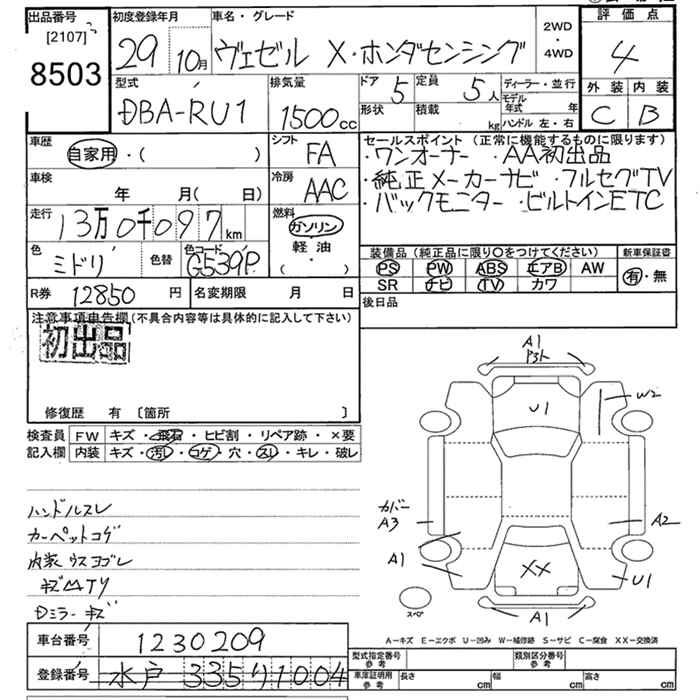 出品番号 初度登録年月 車名・グレード 2WD・4WD 評価点
[2107]
8503 29 10月 ヴェゼル X・ホンダセンシング 4
型式 排気量 ドア 定員 ディーラー・並行 外装 内装
DBA-RU1 1500cc 5 5人 モデル年式 年 C B
形状 積載 kg ハンドル 左・右
車歴 シフト セールスポイント(正常に機能するものに限ります)
自家用・( ) FA ・ワンオーナー ・AA初出品
車検 冷房 ・純正メーカーナビ ・フルセグTV
年 月( 日) AAC ・バックモニター ・ビルトインETC
走行 燃料
13万0千097km ガソリン・軽油・( )
色 色替 色コード 装備品(純正品に限り○をつけてください) 新車保証書
ミドリ G539P PS PW ABS エアB AW 有・無
SR ナビ TV カワ
R券 12850円 名変期限 月 日 後日品
注意事項申告欄(不具合内容等は具体的に記入して下さい)
初出品
修復歴 有 〔箇所 〕
検査員 FW キズ・飛石・ヒビ割・リペア跡・×要
記入欄 内装 キズ・汚レ・コゲ・穴・スレ・キレ・破レ
ハンドルスレ
カーペットコゲ
内装ウスヨゴレ
Dミラーキズ
A1
U1
W2
カバー
A3
A2
A1
XX
U1
スペア
A1
A-キズ E-エクボ U-凹み W-補修跡 S-サビ C-腐食 XX-交換済
車台番号 1230209
登録番号 水戸 335 り 1004
型式指定番号 参考 類別区分番号 参考
車庫証明用 参考 長さ cm 幅 cm 高さ cm